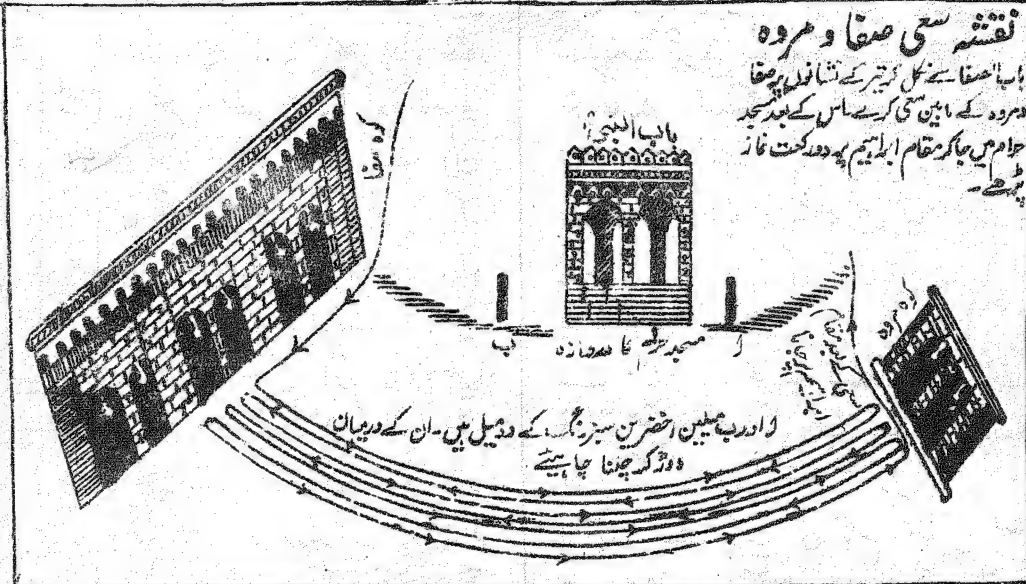 نقشہ سعی صفا و مروہ
باب الصفا سے نکل کر تیر کے نشانوں پر صفا
و مروہ کے مابین سعی کرے۔ اس کے بعد مسجد
حرام میں جا کر مقام ابراہیم پہ دو رکعت نماز
پڑھے۔
کوہ صفا
باب النبیؐ
ب
مسجد حرام کا دروازہ
ا
کوہ مروہ
سعی کے بعد مقام
ابراہیم پر جانا
ا اور ب میلین اخضرین سبز رنگ کے دو میل ہیں۔ ان کے درمیان
دوڑ کر چلنا چاہیئے